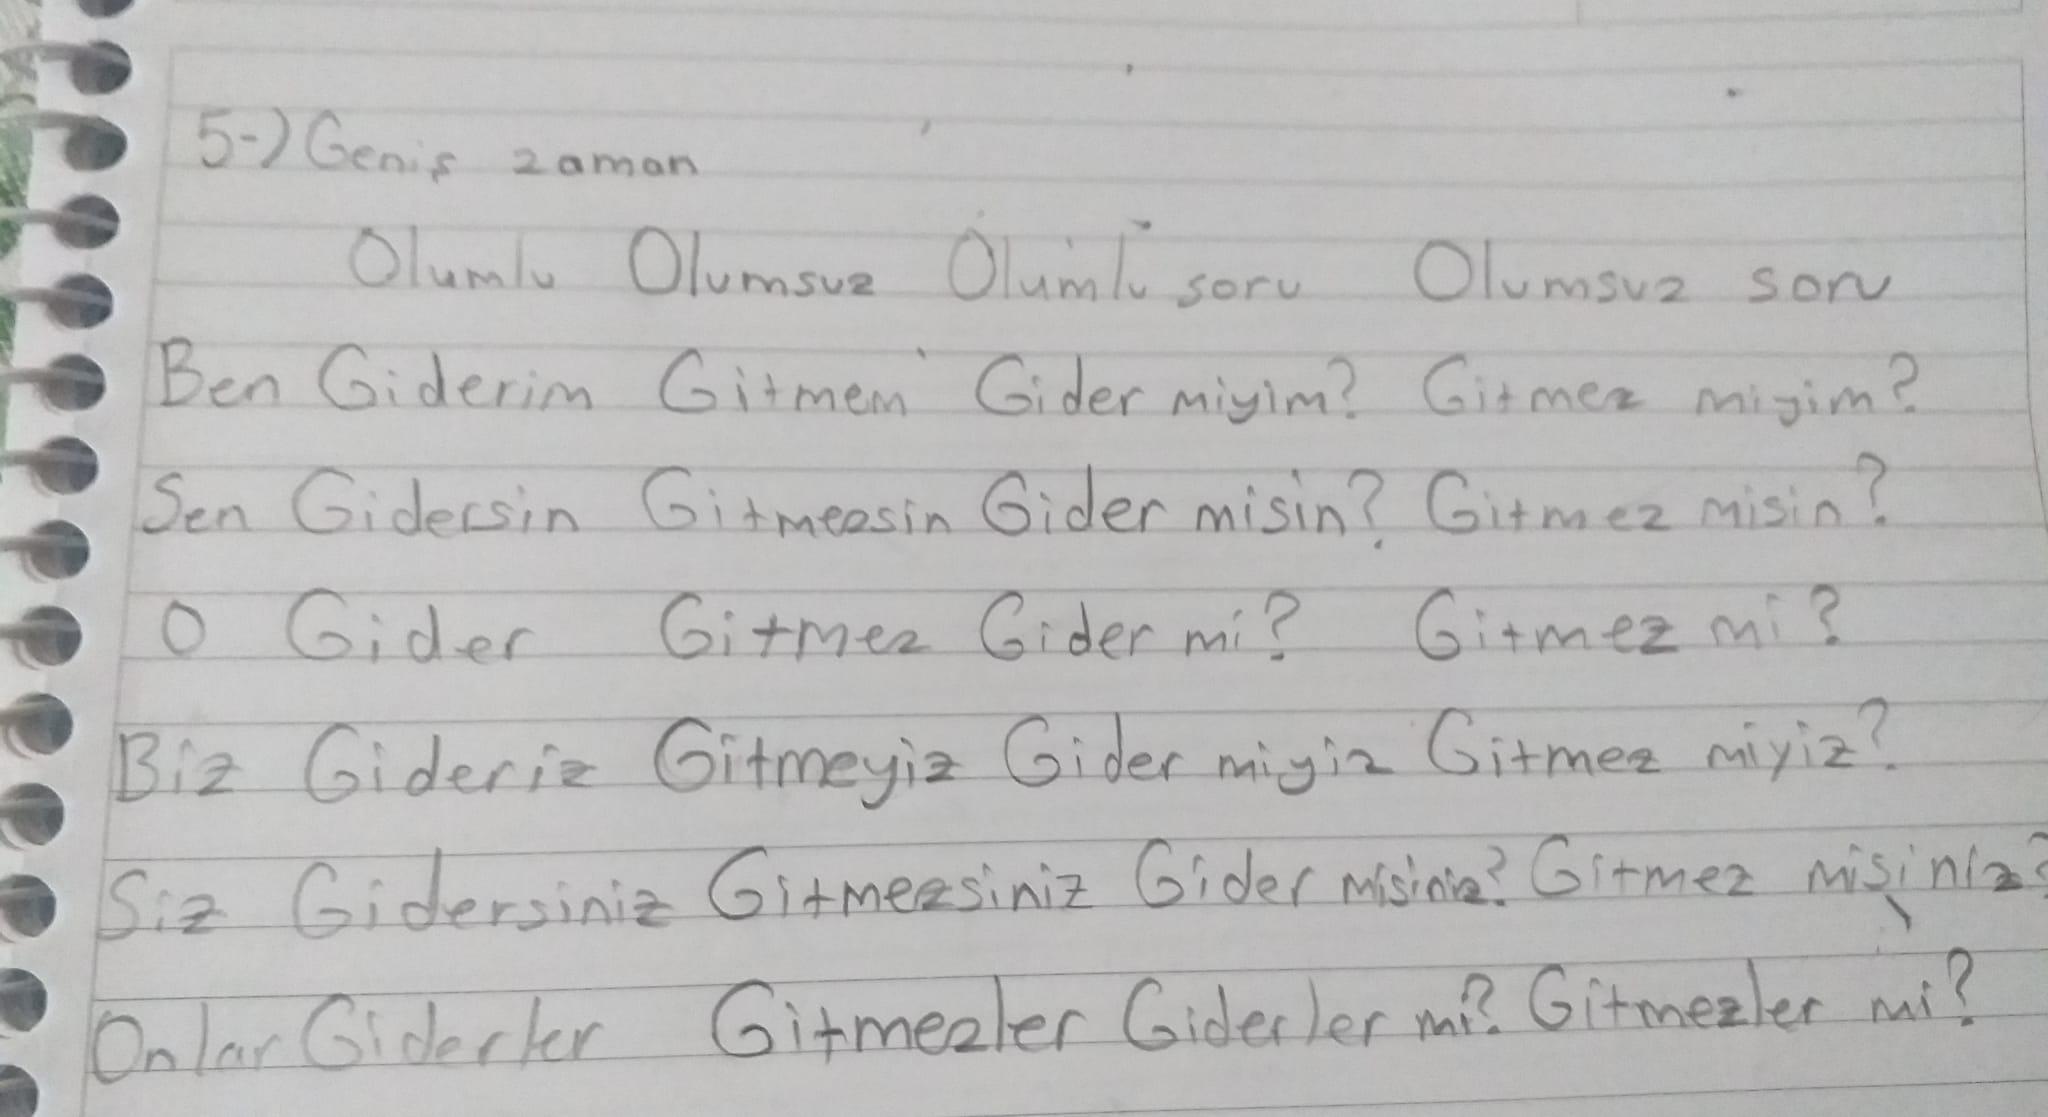 5-) Geniş zaman
Olumlu Olumsuz Olumlu soru Olumsuz soru
Ben Giderim Gitmem Gider miyim? Gitmez miyim?
Sen Gidersin Gitmezsin Gider misin? Gitmez misin?
O Gider Gitmez Gider mi? Gitmez mi?
Biz Gideriz Gitmeyiz Gider miyiz Gitmez miyiz?
Siz Gidersiniz Gitmezsiniz Gider misiniz? Gitmez misiniz?
Onlar Giderler Gitmezler Giderler mi? Gitmezler mi?